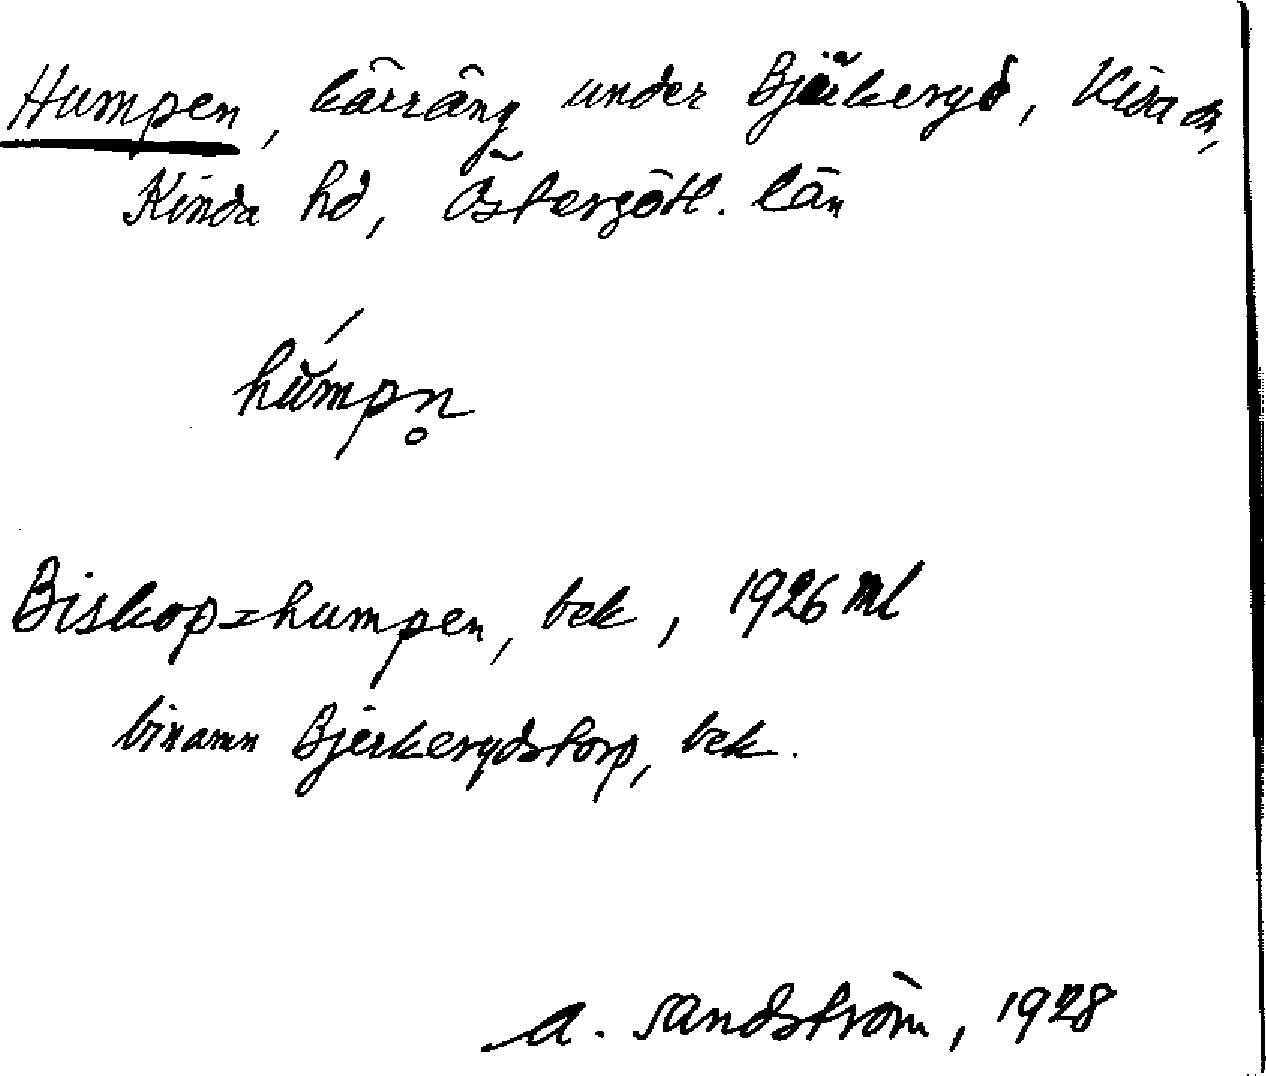 Humpen, kärräng under Bjärkeryd, Kisa sn,
Kinda hd, Östergötl. län
hŭ́mpn̥
Biskopshumpen, bek, 1926 Ml
binamn Bjärkerydstorp, bek.
A. Sandström, 1928